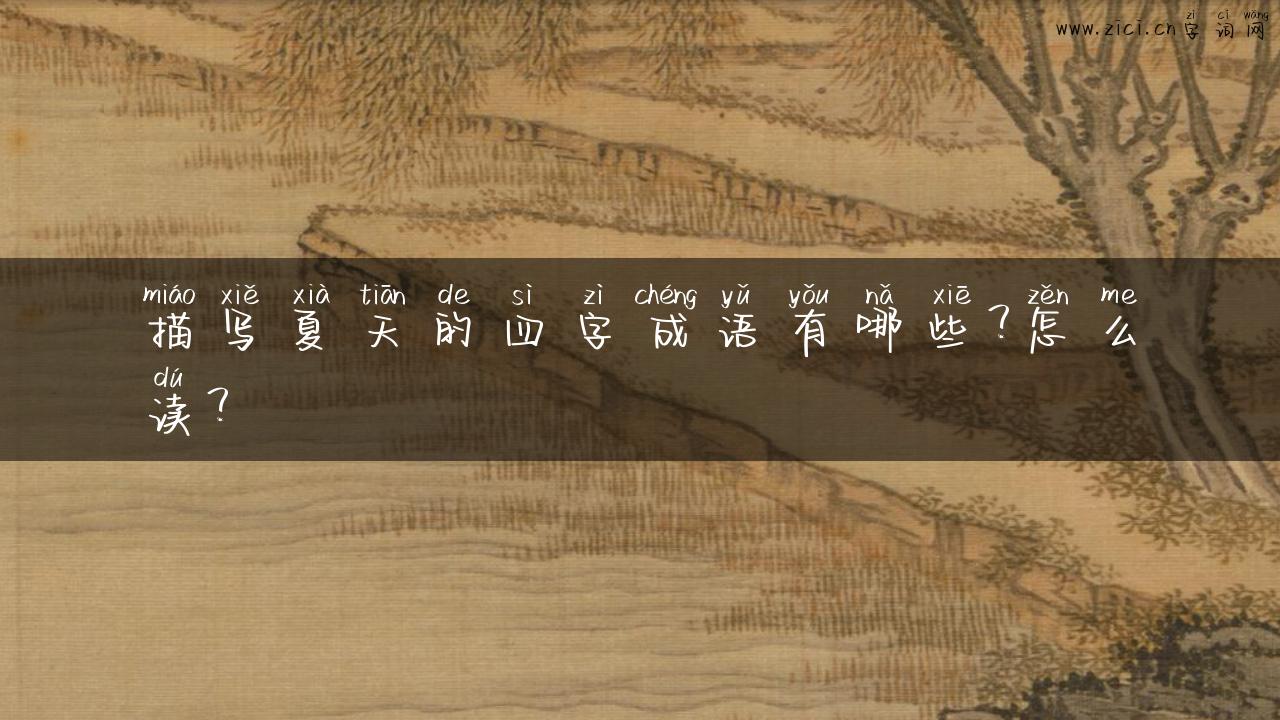 zì cí wǎng
www.zici.cn字词网
miáo xiě xià tiān de sì zì chéng yǔ yǒu nǎ xiē zěn me
描写夏天的四字成语有哪些？怎么
dú
读？